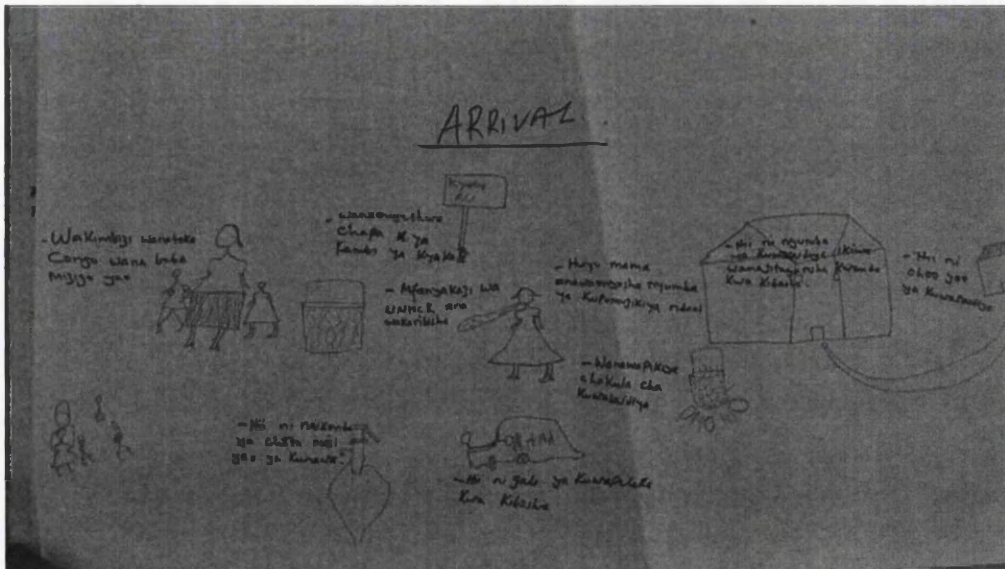 ARRIVAL
- Wakimbizi wanatoka
Congo wana beba
Mizigo yao
- wanaonyeshwa
Chapa ya
Kambi ya Kyaka
Kyaka
- Mfanyakazi wa
UNHCR ana
wakaribisha
- Huyu mama
anawaonyesha nyumba
ya Kupumzikiya ndani
- Hii ni nyumba
ya Kuwapokeya
wanajitayarisha Kwenda
Kwa Kibasha.
- Hii ni
choo yao
ya
- Wanawapikiya
chakula cha
Kuwasaidiya
- Hii ni
ya maji
yao ya Kunawa.
- Hii ni gari ya Kuwapeleka
Kwa Kibasha